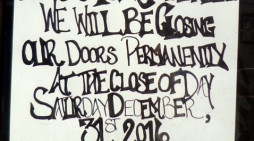 WE WILL BE CLOSING
OUR DOORS PERMANENTLY
AT THE CLOSE OF DAY
SATURDAY DECEMBER,
31ST 2016